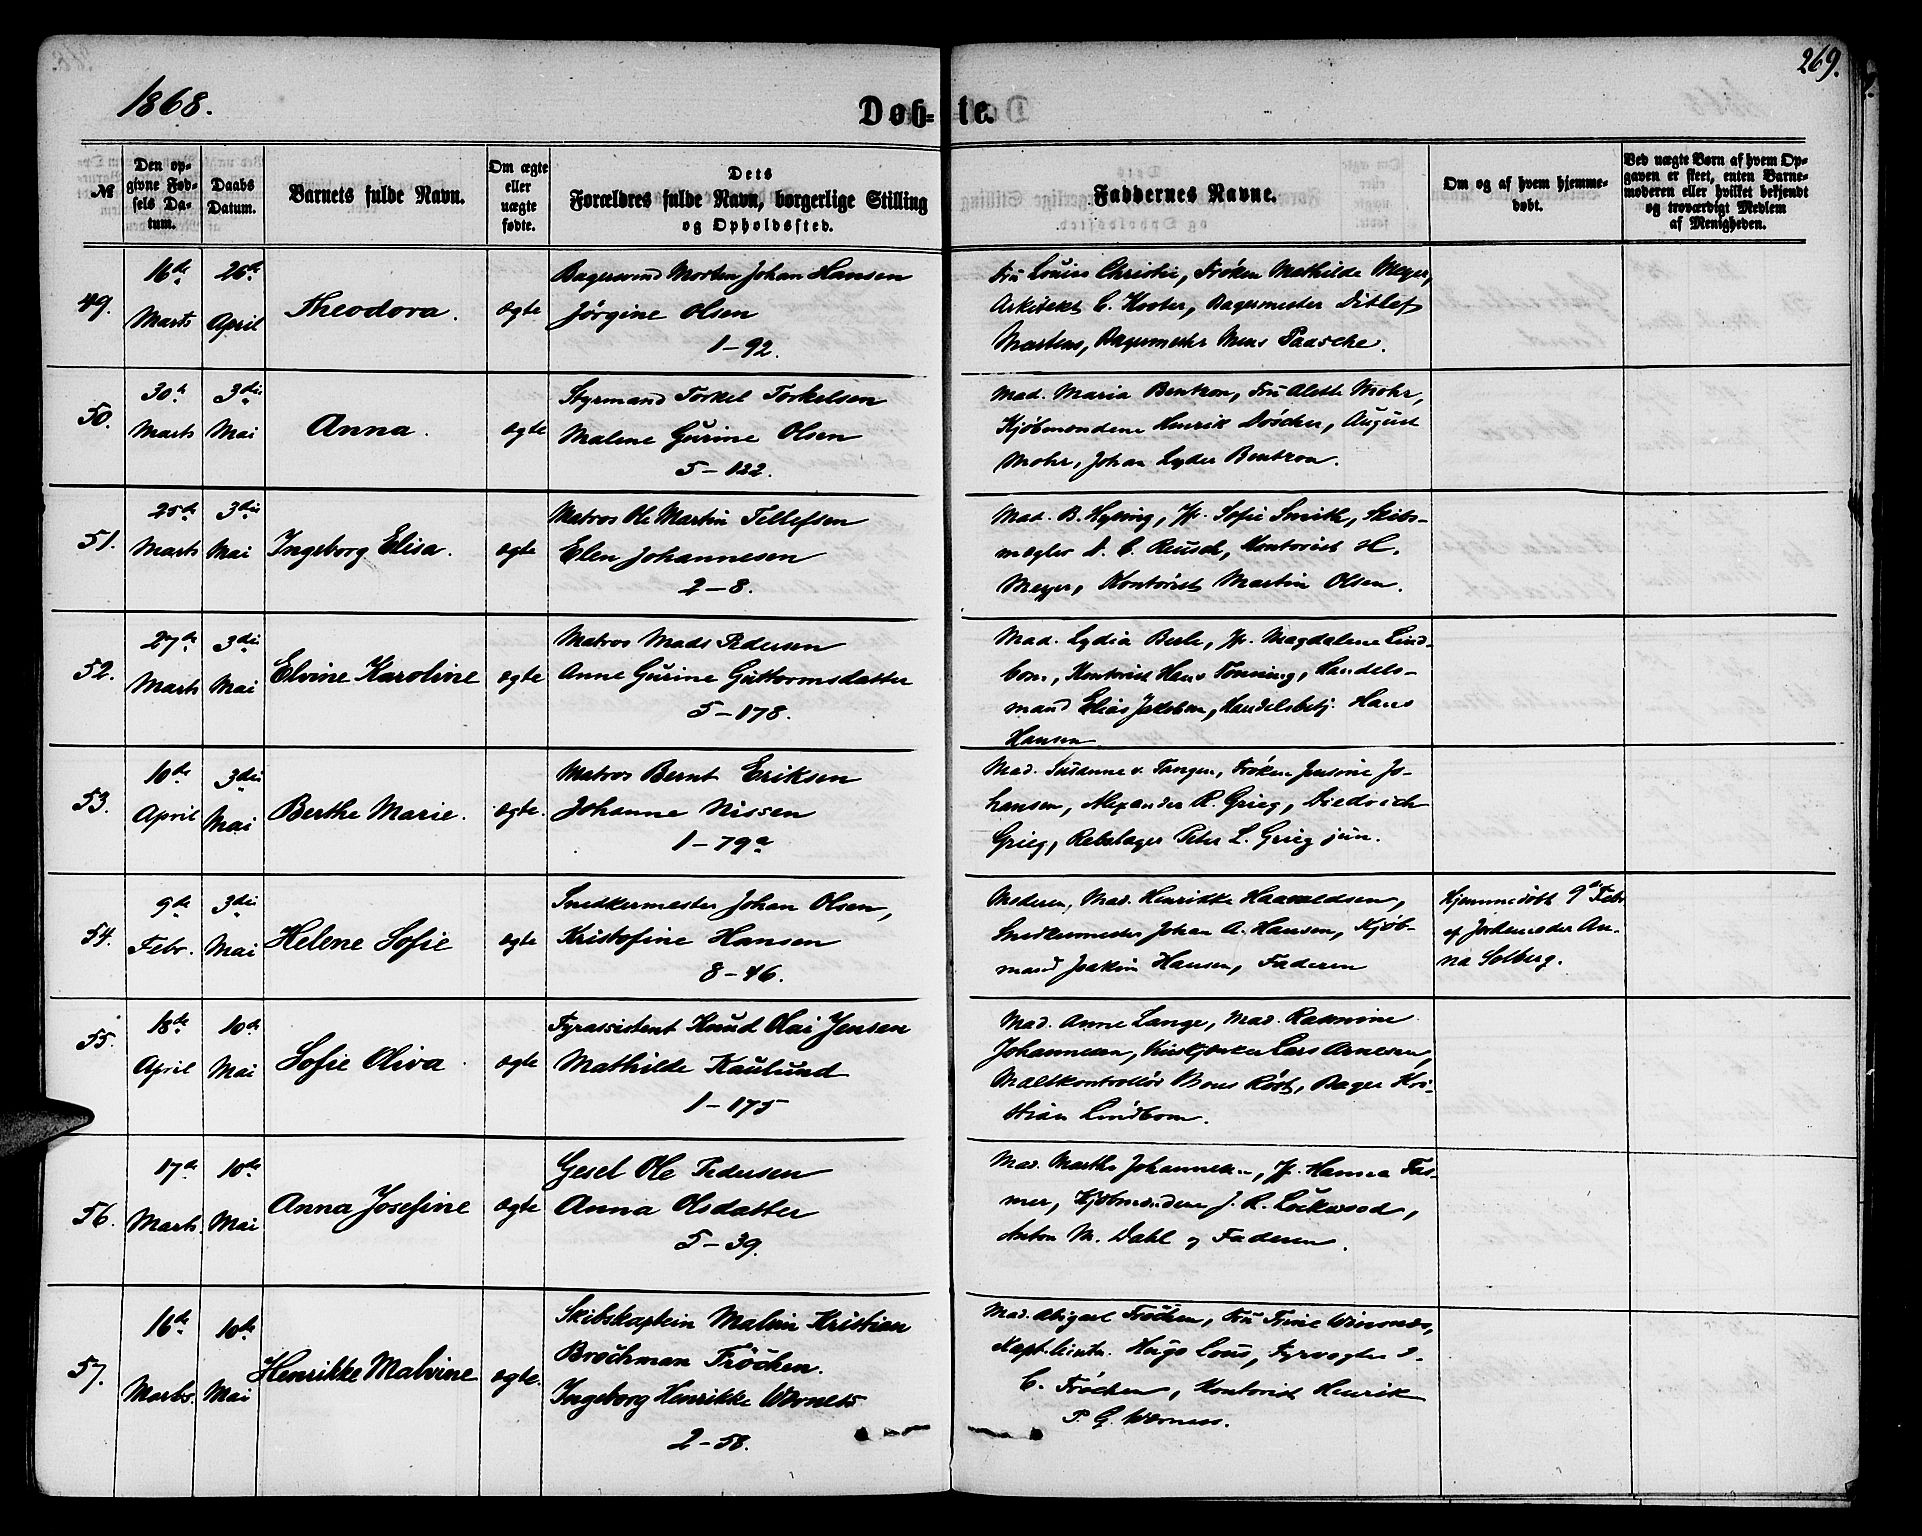 269.
1868.
Døb-te.
№
Den op-
givne Fød-
sels Da-
tum.
Daabs
Datum.
Barnets fulde Navn.
Om ægte
eller
uægte
fødte.
Dets
Forældres fulde Navn, borgerlige Stilling
og Opholdssted.
Faddernes Navne.
Om og af hvem hjemme-
døbt.
Ved uægte Børn af hvem Op-
gaven er skeet, enten Barne-
moderen eller hvilket bekjendt
og troværdigt Medlem
af Menigheden.
49.
16de
Marts
26de
April
Theodora.
ægte
Bagersvend Morten Johan Hansen
Jørgine Olsen
1-92.
Fru Louise Christie, Frøken Mathilde Meyer,
Arkitekt C. Kooter, Bagermester Ditlef
Martens, Bagermestr Mens Paasche.
50.
30de
Marts
3die
Mai
Anna.
ægte
Styrmand Torkel Torkelsen
Malene Gurine Olsen
5-122.
Mad. Maria Bentzon, Fru Alette Mohr,
Kjøbmændene Henrik Döscher, August
Mohr, Johan Lyder Bentzon.
51.
25de
Marts
3die
Mai
Ingeborg Elisa.
ægte
Matros Ole Martin Tellefsen
Elen Johannesen
2-8.
Mad. B. Hysing, Jf. Sofie Smith, Skibs-
mægler D. C. Reusch, Kontorist H.
Meyer, Kontorist Martin Olsen.
52.
27de
Marts
3die
Mai
Elvine Karoline
ægte
Matros Mads Pedersen
Anne Gurine Guttormsdatter
5-178.
Mad. Lydia Berle, Jf. Magdalene Lind-
bom, Kontorist Hans Tonning, Handels-
mand Elias Jakobsen, Handelsbetj. Hans
Hansen
53.
10de
April
3die
Mai
Berthe Marie.
ægte.
Matros Bernt Eriksen
Johanne Nissen
1-79a
Mad. Susanne v. Tangen, Frøken Jensine Jo-
hansen, Alexander R. Grieg, Diedrich
Grieg, Rebslager Peter L. Grieg jun.
54.
9de
Febr.
3die
Mai
Helene Sofie
ægte
Snedkermester Johan Olsen,
Kristofine Hansen
8-46.
Moderen, Mad. Henrikke Haavaldsen,
Snedkermester Johan A. Hansen, Kjøb-
mand Joakim Hansen, Faderen
Hjemmedøbt 9de Febr
af Jordemoder An-
na Solberg.
55.
18de
April
10de
Mai
Sofie Oliva.
ægte
Fyrassistent Knud Olai Jensen
Mathilde Kaulund
1-175
Mad. Anne Lange, Mad. Rasmine
Johannesen, Lars Arnesen,
Maltkontrollør Bons Röst, Bager Kri-
stian Lindbom.
56.
17de
Marts.
10de
Mai
Anna Josefine
ægte
Gesel Ole Pedersen
Anna Olsdatter
5-39.
Mad. Marthe Johannesen, Jf. Hanna Fas-
mer, Kjøbmændene J. R. Lockwood,
Anton M. Dahl og Faderen.
57.
16de
Marts.
10de
Mai
Henrikke Malvine
ægte.
Skibskaptein Malvin Kristian
Brochman Fröchen.
Ingeborg Henrikke Werness
2-58.
Mad. Abigael Fröchen, Fru Trine Wernes,
Kapt.lieutn. Hugo Lous, Fyrvogter D.
C. Fröchen, Kontorist Henrik
P. G. Werness.